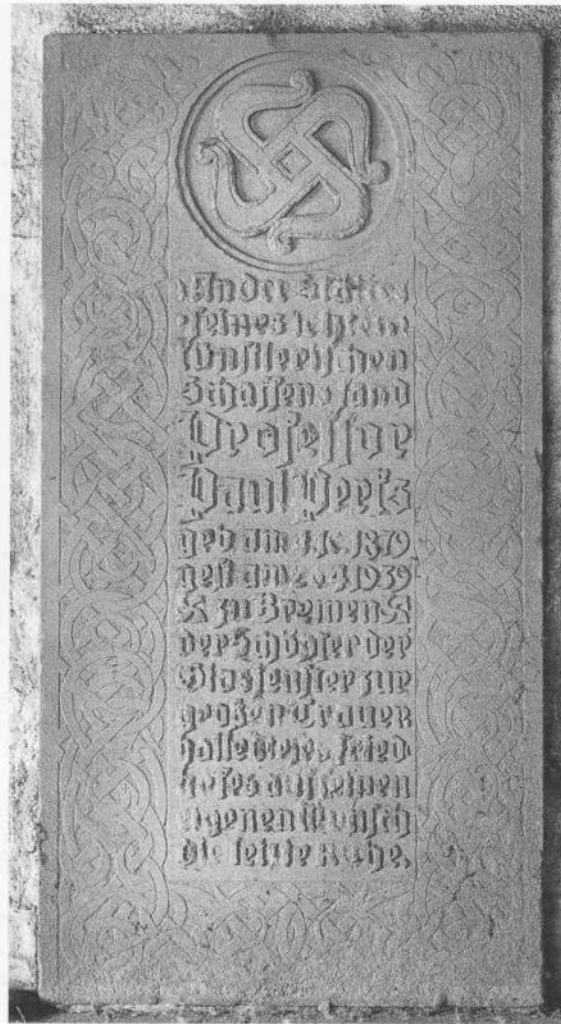 An der Stätte
seines letzten
künstlerischen
Schaffens fand
Professor
Paul Perks
geb am 1879
gest am 4 1939
zu Bremen
der Schöpfer der
Glasfenster zur
großen Trauer
halle dieses Fried
hofes auf seinen
eigenen Wunsch
die letzte Ruhe.